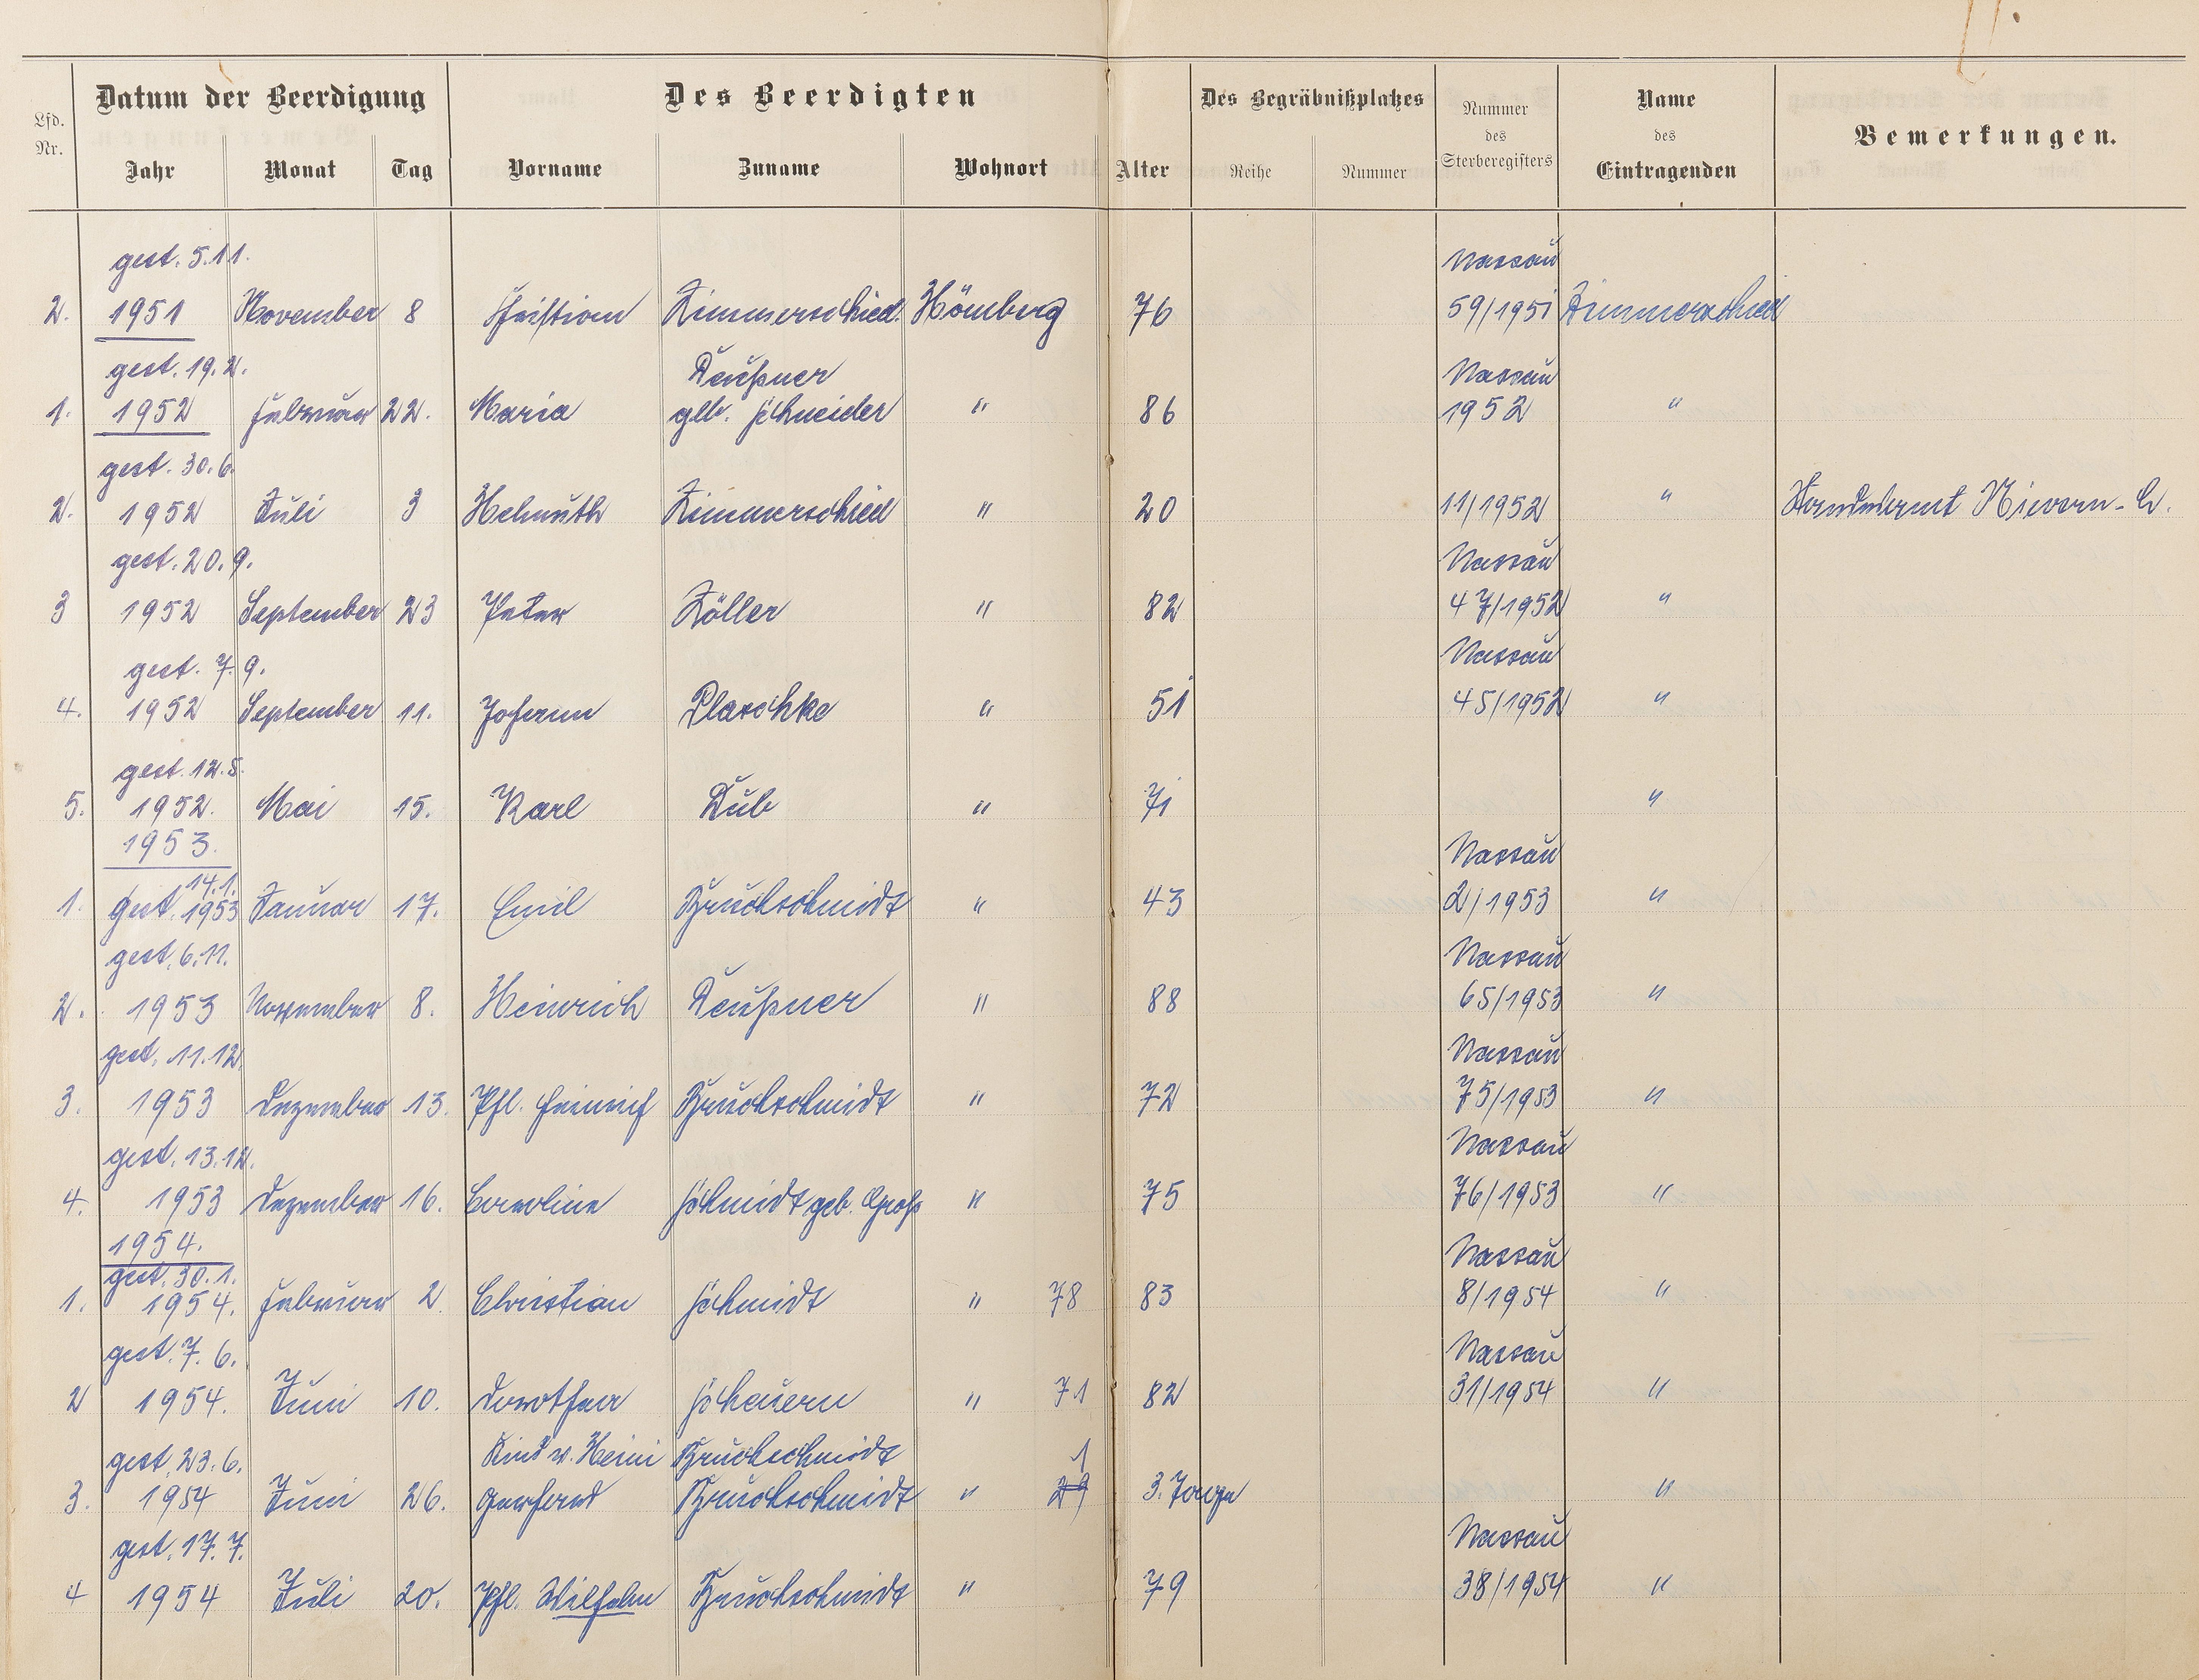 Datum der Beerdigung Des Beerdigten Des Begräbnißplatzes Nummer des Sterberegisters Name des Eintragenden Bemerkungen.
Lfd. Nr. Jahr Monat Tag Vorname Zuname Wohnort Alter Reihe Nummer
gest. 5.11. Nassau
2. 1951 November 8 Christian Zimmerschied. Hömberg 76 59/1951 Zimmerschied
gest. 19.2. Deußner Nassau
1. 1952 Februar 22. Maria geb. Schneider " 86 1952 "
gest. 30.6.
2. 1952 Juli 3 Helmuth Zimmerschied " 20 11/1952 " Standesamt Nievern-L.
gest. 20.9. Nassau
3 1952 September 23 Peter Zöller " 82 47/1952 "
gest. 7.9. Nassau
4. 1952 September 11. Johann Plaschke " 51 45/1952 "
gest. 12.5.
5. 1952. Mai 15. Karl Dub " 71 "
1953. Nassau
14.1.
1. gest. 1953 Januar 17. Emil Bruchschmidt " 43 2/1953 "
gest. 6.11. Nassau
2. 1953 November 8. Heinrich Deußner " 88 65/1953 "
gest. 11.12. Nassau
3. 1953 Dezember 13. Phl. Heinrich Bruchschmidt " 72 75/1953 "
gest. 13.12. Nassau
4. 1953 Dezember 16. Caroline Schmidt geb. Groß " 75 76/1953 "
1954. Nassau
gest. 30.1.
1. 1954. Februar 2. Christian Schmidt " 78 83 8/1954 "
gest. 7.6. Nassau
2 1954. Juni 10. Dorothea Scheuern " 71 82 31/1954 "
gest. 23.6. Kind v. Heini Bruchschmidt 1
3. 1954 Juni 26. Gerhard Bruchschmidt " 29 3. Tage "
gest. 17.7. Nassau
4 1954 Juli 20. Phl. Wilhelm Bruchschmidt " 79 38/1954 "